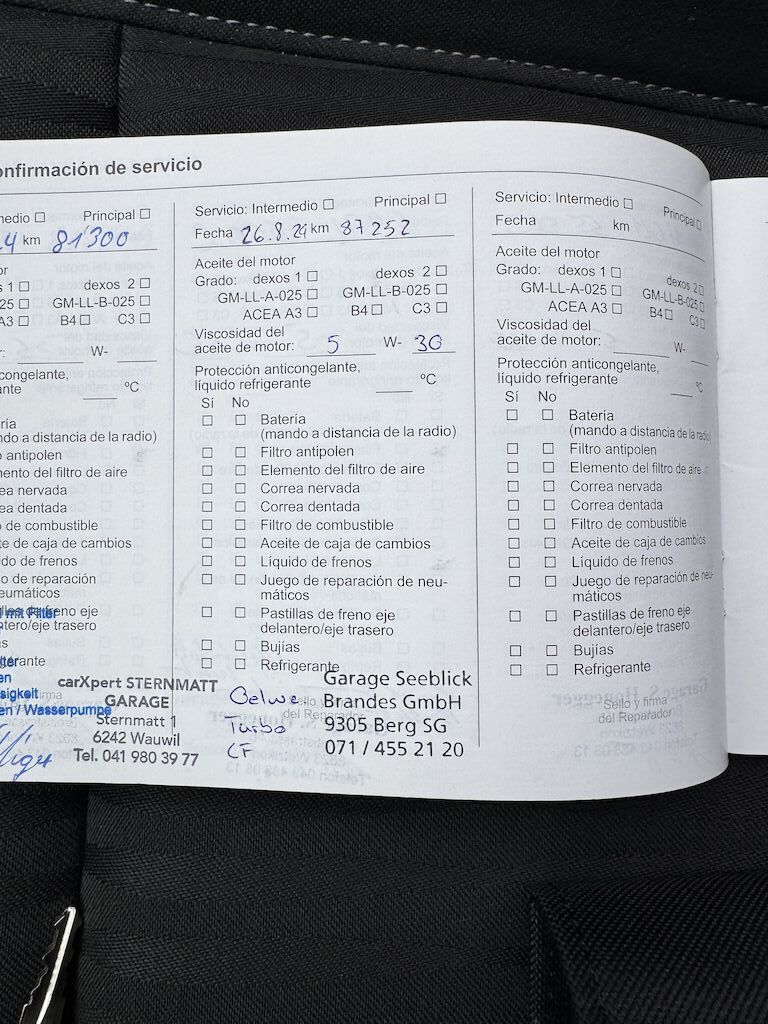 onfirmación de servicio
nedio ☐ Principal ☐
24 km 81300
or
s 1 ☐ dexos 2 ☐
25 ☐ GM-LL-B-025 ☐
A3 ☐ B4 ☐ C3 ☐
r: W-
congelante,
ante ºC
ría
ndo a distancia de la radio)
o antipolen
mento del filtro de aire
rea nervada
rea dentada
o de combustible
te de caja de cambios
ido de frenos
o de reparación
neumáticos
freno eje
elantero/eje trasero
as
gerante
mit Filter
lter
en
sigkeit
en / Wasserpumpe
carXpert STERNMATT
GARAGE
Sternmatt 1
6242 Wauwil
Tel. 041 980 39 77
Servicio: Intermedio ☐ Principal ☐
Fecha 26.8.24 km 87252
Aceite del motor
Grado: dexos 1 ☐ dexos 2 ☐
GM-LL-A-025 ☐ GM-LL-B-025 ☐
ACEA A3 ☐ B4 ☐ C3 ☐
Viscosidad del
aceite de motor: 5 W- 30
Protección anticongelante,
líquido refrigerante ºC
Sí No
☐ ☐ Batería
(mando a distancia de la radio)
☐ ☐ Filtro antipolen
☐ ☐ Elemento del filtro de aire
☐ ☐ Correa nervada
☐ ☐ Correa dentada
☐ ☐ Filtro de combustible
☐ ☐ Aceite de caja de cambios
☐ ☐ Líquido de frenos
☐ ☐ Juego de reparación de neu-
máticos
☐ ☐ Pastillas de freno eje
delantero/eje trasero
☐ ☐ Bujías
☐ ☐ Refrigerante
Sello y firma
del Reparador
Turbo
CF
Garage Seeblick
Brandes GmbH
9305 Berg SG
071 / 455 21 20
Servicio: Intermedio ☐ Principal ☐
Fecha km
Aceite del motor
Grado: dexos 1 ☐ dexos 2 ☐
GM-LL-A-025 ☐ GM-LL-B-025 ☐
ACEA A3 ☐ B4 ☐ C3 ☐
Viscosidad del
aceite de motor: W-
Protección anticongelante,
líquido refrigerante ºC
Sí No
☐ ☐ Batería
(mando a distancia de la radio)
☐ ☐ Filtro antipolen
☐ ☐ Elemento del filtro de aire
☐ ☐ Correa nervada
☐ ☐ Correa dentada
☐ ☐ Filtro de combustible
☐ ☐ Aceite de caja de cambios
☐ ☐ Líquido de frenos
☐ ☐ Juego de reparación de neu-
máticos
☐ ☐ Pastillas de freno eje
delantero/eje trasero
☐ ☐ Bujías
☐ ☐ Refrigerante
Sello y firma
del Reparador